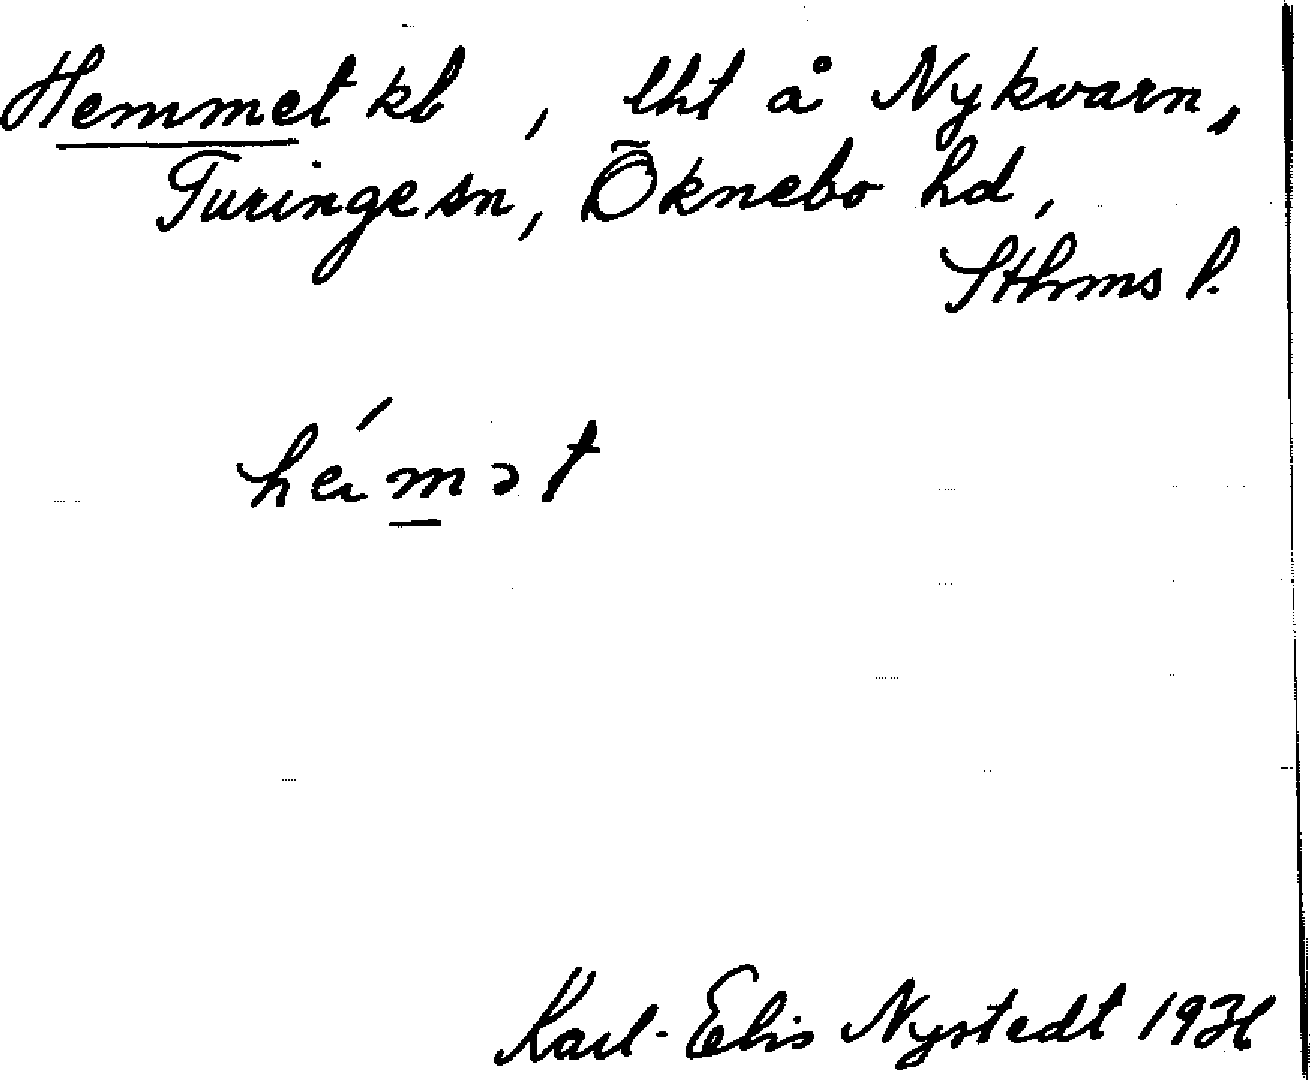 Hemmet kb, lht å Nykvarn,
Turinge sn, Öknebo hd,
Sthms l.
hémət
Karl-Elis Nystedt 1936